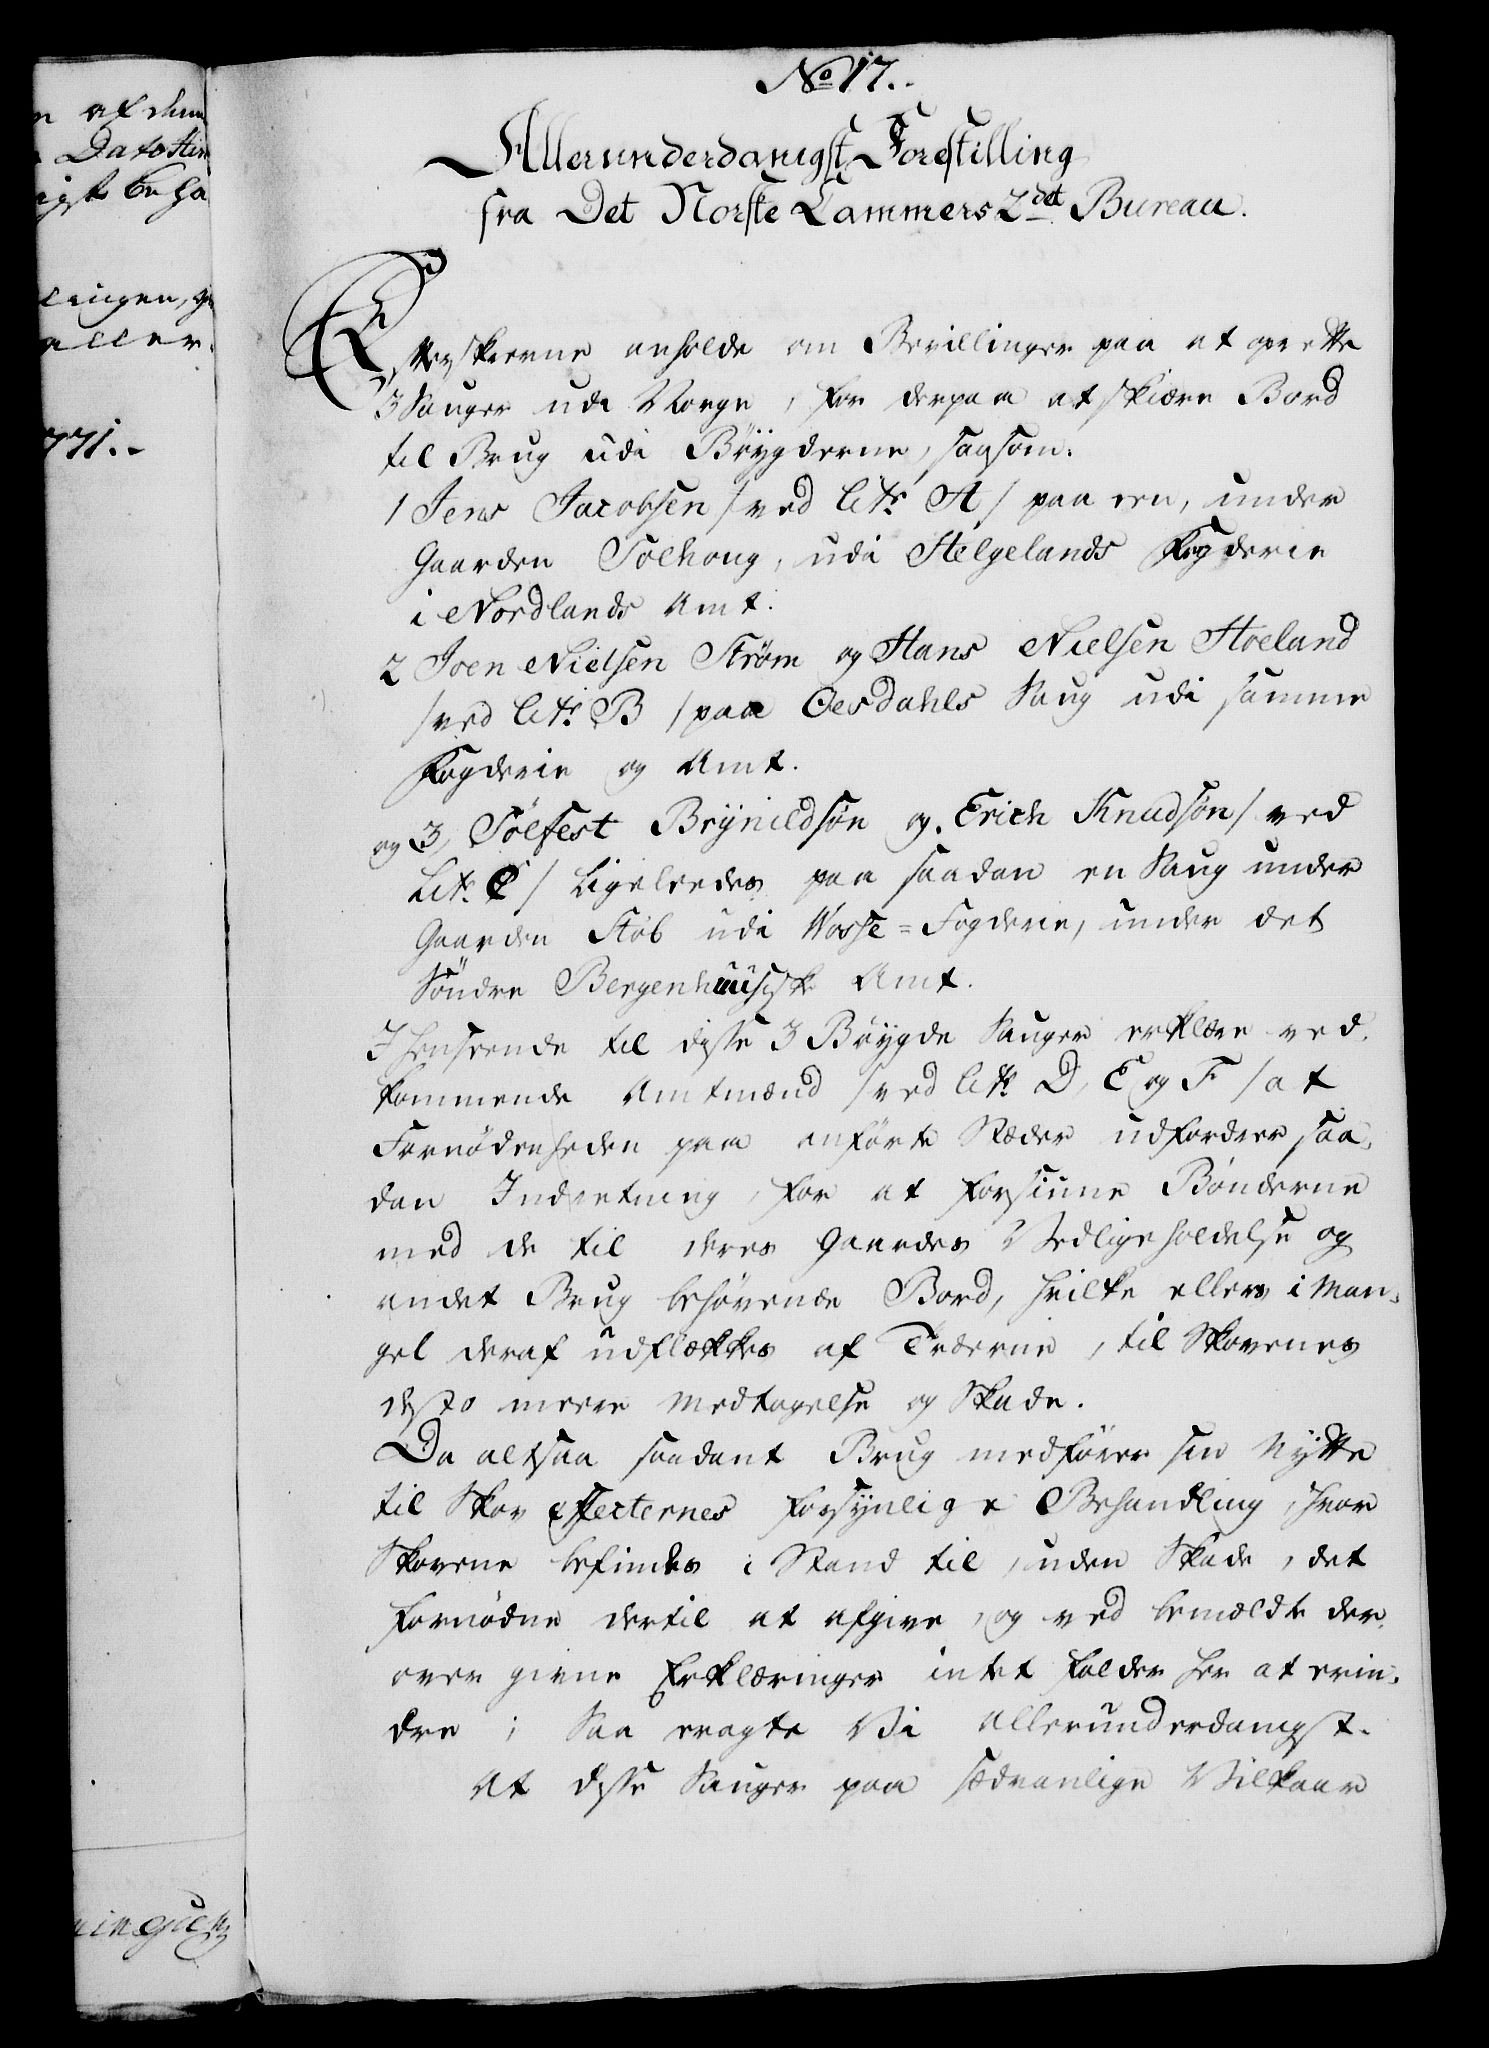 n af denn
Dato Hin
igst beha
lingen, og
aller.
771.-
ninguen
No 17.
Allerunderdanigst Forestilling
fra Det Norske Cammers 2det Bureau.
Efterskrevne anholde om Bevillinger paa at oprette
3 Sauger udi Norge, for derpaa at skiære Bord
til Brug udi Böygderne, saasom.
1 Jens Jacobsen /ved Litr: A/ paa een, under
Gaarden Solhoug, udi Helgelands Fogderie
i Nordlands Amt.
2 Joen Nielsen Strøm og Hans Nielsen Hoeland
/ved Litr: B/ paa Oesdahls Saug udi samme
Fogderie og Amt.
og 3, Sölfest Brÿnildsön og Erich Knudsön /ved
Lit: C/ Ligeledes paa saadan en Saug under
Gaarden Støb udi Wosse=Fogderie, under det
Söndre Bergenhuusiske Amt.
I Henseende til disse 3 Böygde Sauger erklære ved-
kommende Amtmænd /ved Litr: D, E og F/ at
Fornödenheden paa anförte Stæder udfordrer saa-
dan Indretning, for at forsiune Bönderne
med de til deres Gaardes Vedligeholdelse og
andet Brug behövende Bord, hvilke ellers i Man-
gel deraf udflækkes af Træerne, til Skovenes
desto meere Medtagelse og Skade.
Da altsaa saadant Brug medförer sin Nÿtte
til Skov Effecternes forsÿnlige Behandling, hvor
Skovene befindes i Stand til, uden Skade, det
fornödne dertil at afgive, og ved bemældte der-
over givne Erklæringer intet falder her at erin-
dre; Saa eragte Vi allerunderdanigst.
at disse Sauger paa sædvanlige Vilkaar